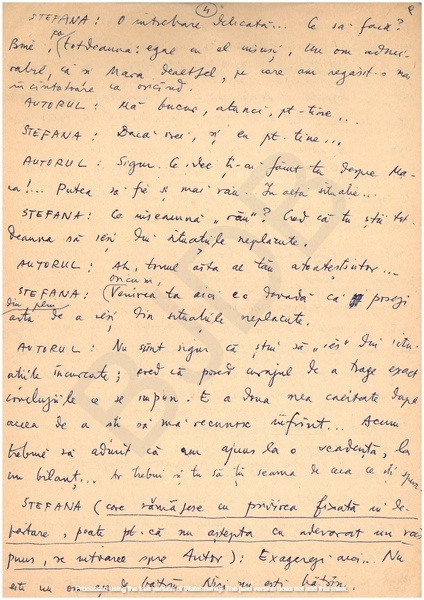 4
STEFANA: O întrebare delicată... Ce să facă?
Bine, ca totdeauna: egal cu el însuși. Un om admi-
rabil, că și Mara dealtfel, pe care am regăsit-o mai
încîntătoare ca oricînd.
AUTORUL: Mă bucur, atunci, pt. tine...
STEFANA: Dacă vrei, și eu pt. tine...
AUTORUL: Sigur. Ce idee ți-ai făcut tu despre Ma-
ra!... Putea să fie și mai rău. În altă situație...
STEFANA: Ce înseamnă „rău"? Cred că tu știi tot-
deauna să ieși din situațiile neplăcute.
AUTORUL: Ah, tonul ăsta al tău atoateștiutor...
STEFANA: (Venirea ta aici e o dovadă că posezi
oricum,
din plin
arta de a ieși din situațiile neplăcute.
AUTORUL: Nu sînt sigur că știu să „ies" din situ-
ațiile încurcate; cred că posed curajul de a trage exact
concluziile ce se impun. E a doua mea calitate după
aceea de a ști să mă recunosc înfrînt... Acum
trebuie să admit că am ajuns la o scadență, la
un bilanț... Ar trebui și tu să ții seama de ceea ce îți spun.
STEFANA (care rămăsese cu privirea fixată în de-
părtare, poate pt. că nu aștepta cu adevărat un răs-
puns, se întoarce spre Autor): Exagerezi aici... Nu
este un om de bătrîn. Nici nu ești bătrîn.